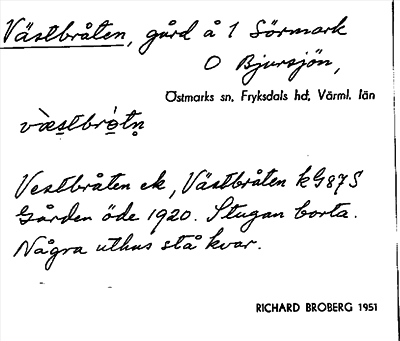 Västbråten, gård å 1 Sörmark
O Bjursjön,
Östmarks sn, Fryksdals hd, Värml. län
væstbrotn
Vestbråten ek, Västbråten kG87S
Gården öde 1920. Stugan borta.
Några uthus stå kvar.
RICHARD BROBERG 1951